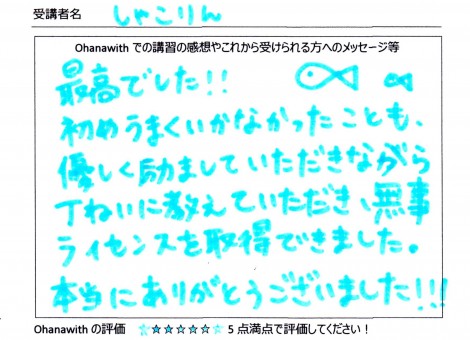 受講者名 しゃこりん
Ohanawith での講習の感想やこれから受けられる方へのメッセージ等
最高でした!!
初めうまくいかなかったことも、
優しく励ましていただきながら
丁ねいに教えていただき、無事
ライセンスを取得できました。
本当にありがとうございました!!!
Ohanawith の評価 ☆☆☆☆☆☆☆ 5 点満点で評価してください！